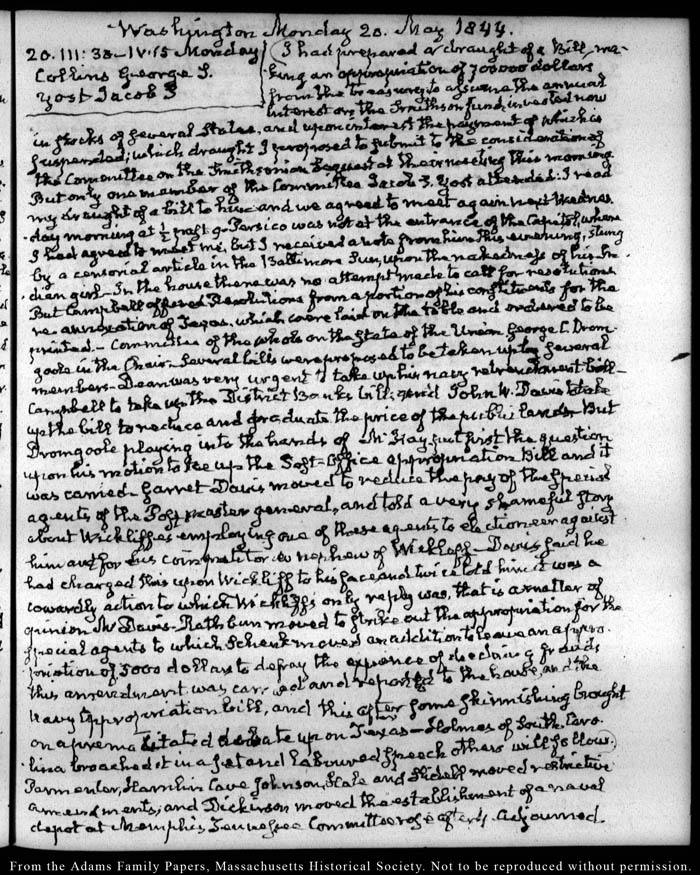 Washington Monday 20. May 1844.
20. III:30—IV:15 Monday
Collins George S.
Yost Jacob S
I had prepared a draught of a Bill ma-
king an appropriation of 300 000 dollars
from the treasury to assume the annual
interest on the Smithson fund, invested now
in stocks of several States, and upon interest the payment of which is
suspended; which draught I proposed to submit to the consideration of
the Committee on the Smithsonian Bequest at their meeting this morning
But only one member of the Committee Jacob S. Yost attended: I read
my draught of a bill to him and we agreed to meet again next Wednes-
day morning at ½ past 9. Persico was not at the entrance of the Capitol, where
I had agreed to meet me, but I received a note from him this evening, stung
by a censorial article in the Baltimore Sun, upon the nakedness of his In-
dian girl— In the house there was no attempt made to call for resolutions
But Campbell offered Resolutions from a portion of his constituents for the
re-annexation of Texas, which were laid on the table and ordered to be
printed— Committee of the whole on the State of the Union George C. Drom-
goole in the Chair— Several bills were proposed to be taken up by several
members— Dean was very urgent to take up his navy retrenchment bill—
Campbell to take up the District Banks bill; and John W. Davis to take
up the bill to reduce and graduate the price of the public lands— But
Dromgoole playing into the hands of McKay put first the question
upon his motion to take up the Post-Office appropriation Bill and it
was carried— Garret Davis moved to reduce the pay of the Special
agents of the Postmaster general, and told a very shameful story
about Wickliffe's employing one of these agents to electioneer against
him and for his competitor a nephew of Wickliffe— Davis said he
had charged this upon Wickliff to his face and twice told him it was a
cowardly action to which Wickliffe's only reply was, that is a matter of
opinion Mr Davis— Rathbun moved to strike out the appropriation for the
special agents to which Schenk moved an addition to leave an appro-
priation of 5000 dollars to defray the expence of detecting frauds
this amendment was carried and reported to the house, and the
Navy appropriation bill, and this after some skirmishing brought
on a premeditated debate upon Texas— Holmes of South Caro-
lina broached it in a set and laboured speech others will follow.
Parmenter, Hamlin Cave Johnson, Hale and Slidell moved restrictive
amendments; and Dickinson moved the establishment of a naval
depot at Memphis, Tennessee Committee rose after 4. Adjourned.
From the Adams Family Papers, Massachusetts Historical Society. Not to be reproduced without permission.